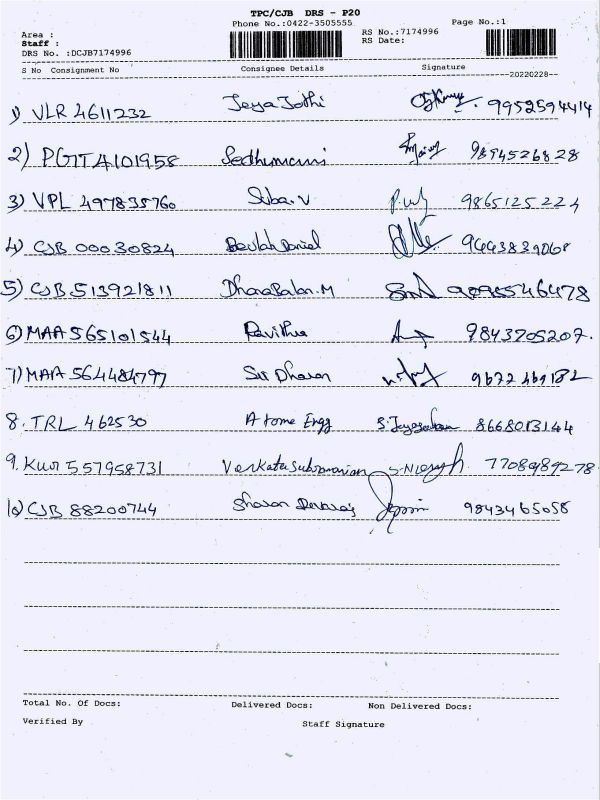 TPC/CJB DRS - P20
Phone No.:0422-3505555 Page No.:1
Area : RS No.:7174996
Staff : RS Date:
DRS No. :DCJB7174996
S No Consignment No Consignee Details Signature
20220228
1) VLR 4611232 Jeya Jothi 9952594414
2) PGTT4101958 9894526828
3) VPL 497835760 Suba.V 9865125224
4) CJB 00030824 Beulah Daniel
5) CJB 513921811 DhanaBalan.M 9095546478
6) MAA 565101544 Pavithra 9843705207.
7) MAA 564484797 Sri Dharan
8. TRL 462530 Atome Engg 8668013144
9. KUR 557958731 Venkatasubramanian 7708989278
10) CJB 88200744 Sharon Devaraj 9843465058
Total No. Of Docs: Delivered Docs: Non Delivered Docs:
Verified By Staff Signature